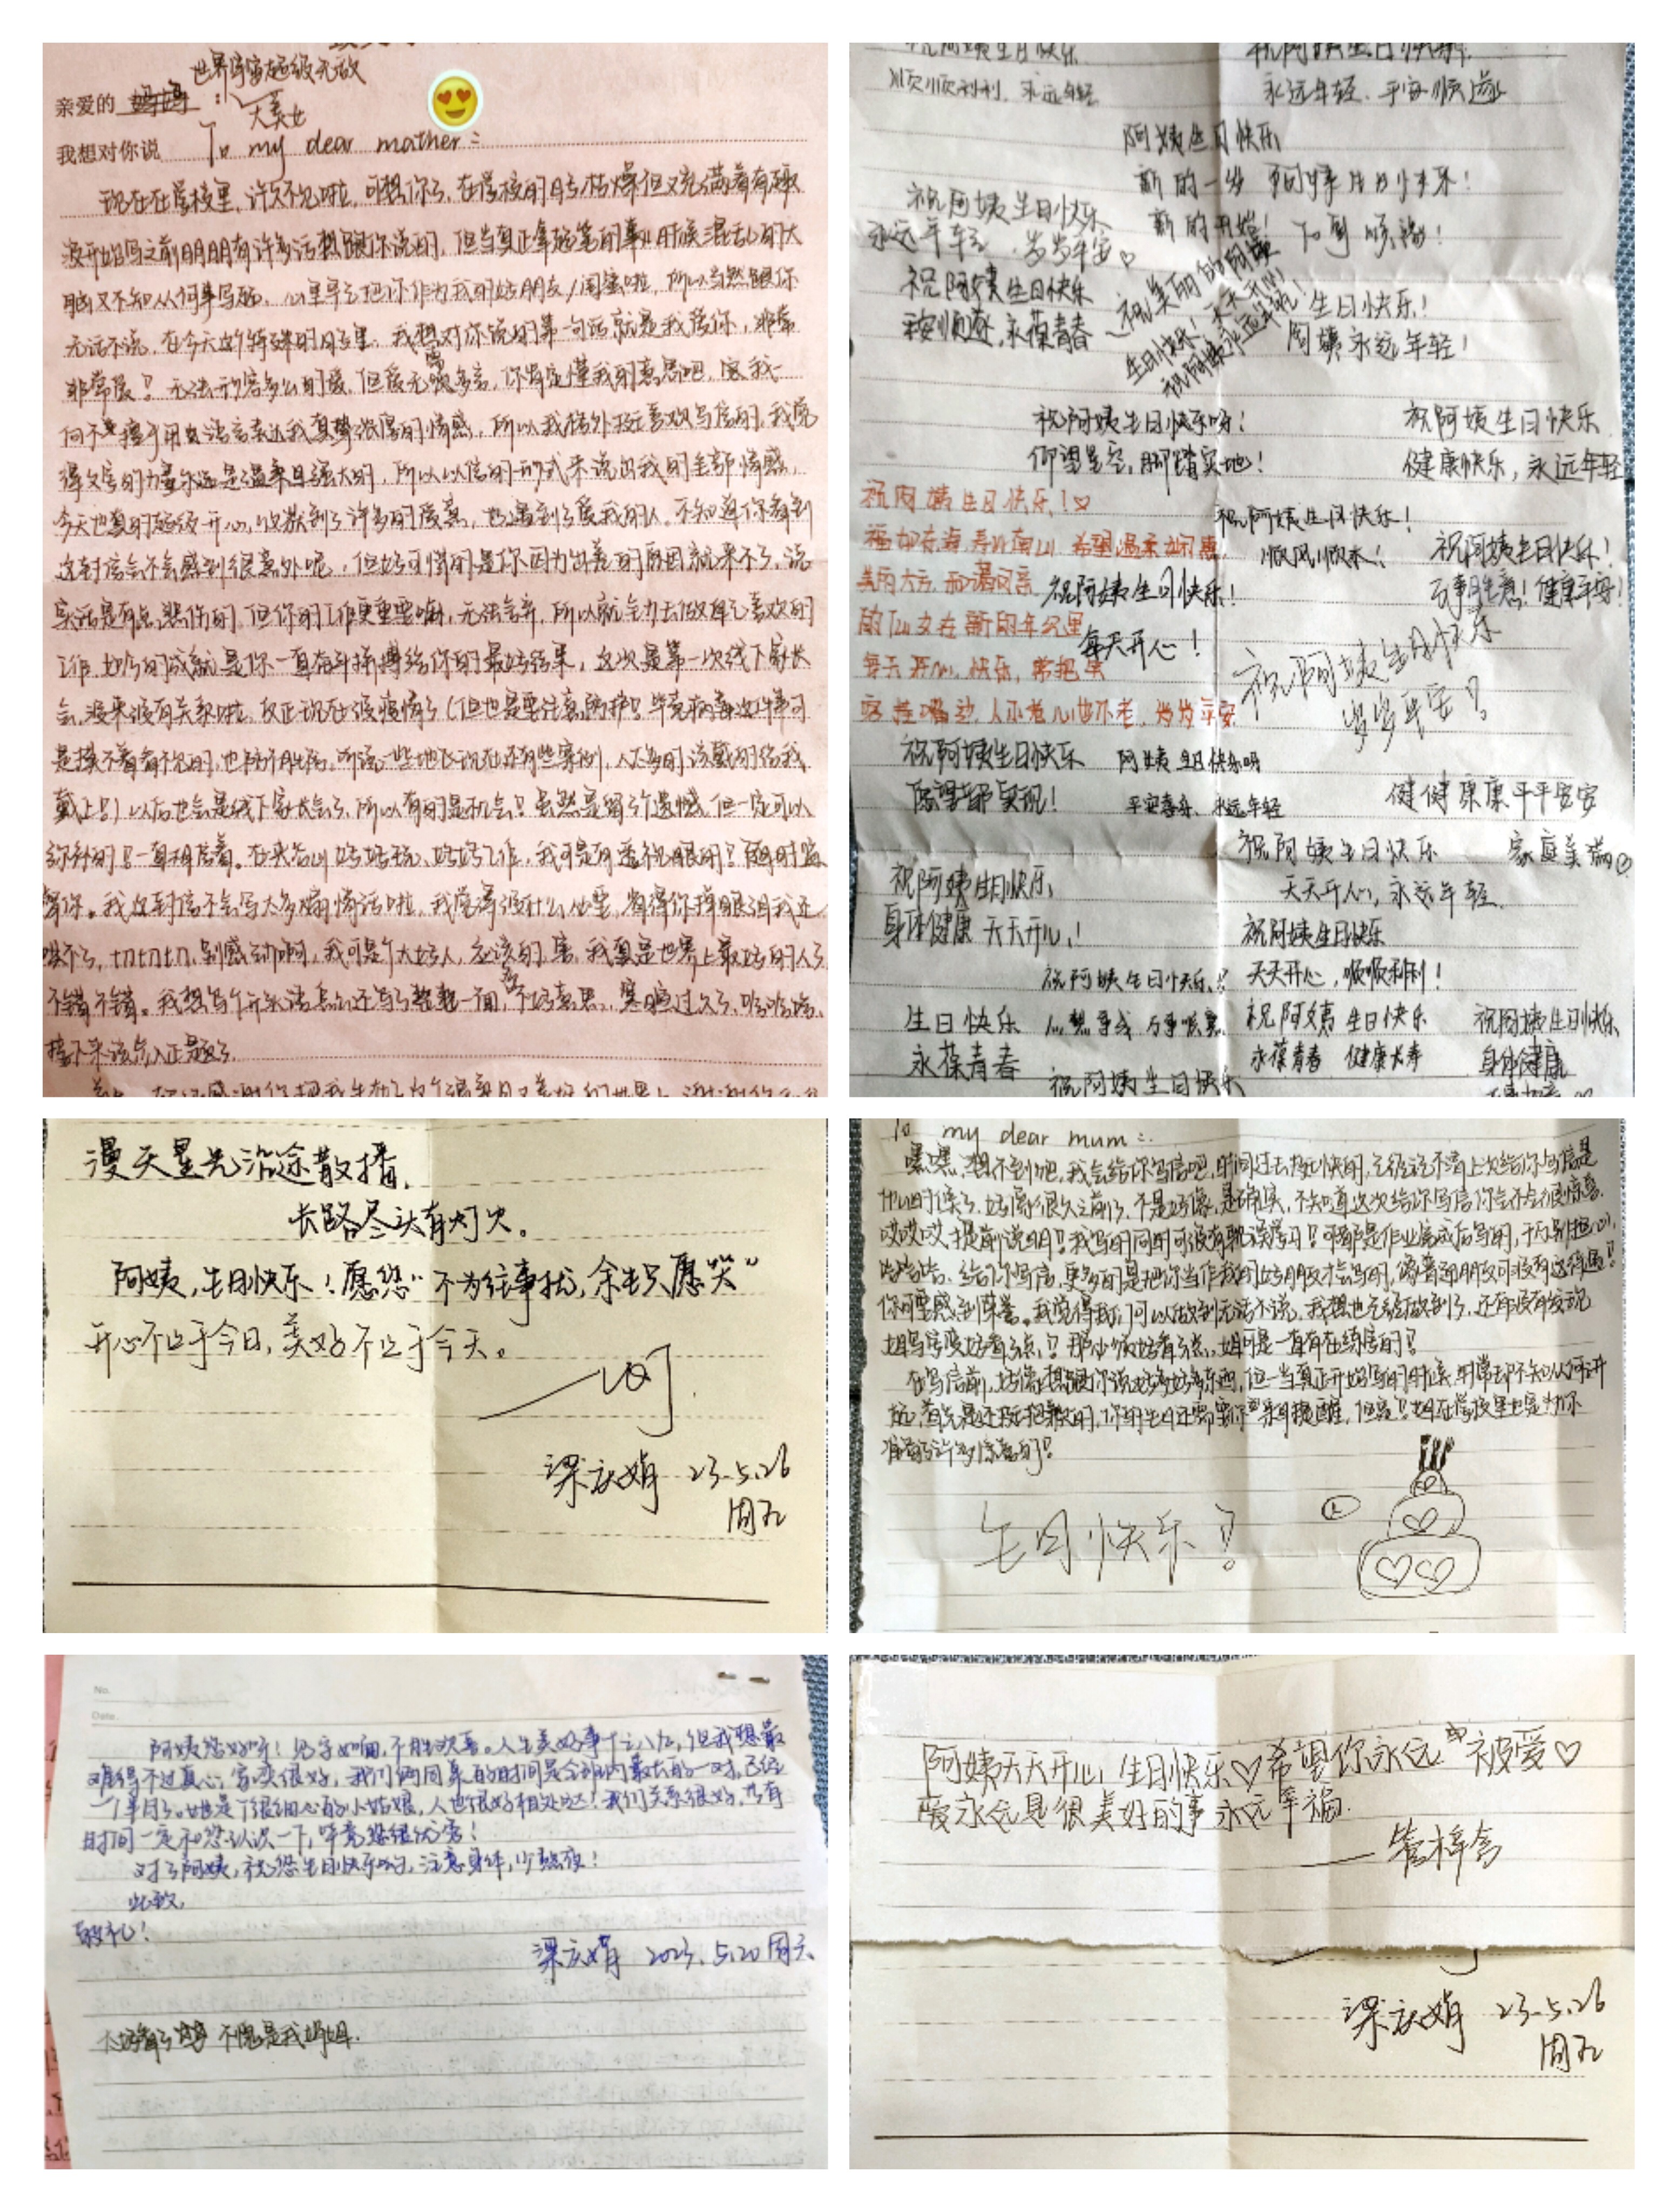 世界宇宙超级无敌
亲爱的 妈妈：
大美女
我想对你说 To my dear mather：
现在在学校里，许久不见啦，可想你了，在学校的日子枯燥但又充满着有趣
没开始写之前明明有许多话想跟你说的，但当真正拿起笔的时候混乱的大
脑又不知从何事写起，心里早已把你作为我的好朋友/闺蜜啦，所以当然跟你
无话不说，在今天这个特殊的日子里，我想对你说的第一句话就是我爱你，非常
非常爱！无法形容多么的爱，但爱无需多言，你肯定懂我的意思吧，
何不擅于用语言表达我真挚浓厚的情感，所以我格外挺喜欢写信的，我觉
得文字的力量永远是温柔且强大的，所以以信的形式来说出我的全部情感，
今天也真的超级开心，收获到了许多的爱意，也遇到了爱我的人。不知道你看到
这封信会不会感到很意外呢，但好可惜的是你因为出差的原因就来不了，说
实话是有点悲伤的，但你的工作更重要嘛，无法舍弃，所以就全力去做自己喜欢的
工作，如今的成就是你一直奋斗拼搏给你的最好结果，这次是第一次线下家长
会，没来没有关系啦，反正现在没疫情了（但也是要注意防护！毕竟病毒这件事可
是摸不着看不见的，也防不胜防，听说一些地区现在还有些案例，人多时该戴的给我
戴上！）以后也会是线下家长会了，所以有的是机会！虽然是留了个遗憾，但一定可以
弥补的！一直相信着。在 好好玩，好好工作，我可是有透视眼的！随时监
督你。我这封信不会写太多煽情话啦，我觉得没什么必要，省得你掉眼泪我还
哄不了，切切切，别感动啊，我可是个大好人，应该的，害，我真是世界上最好的人了
不错不错。我想写个开头语怎么还写了整整一面，不好意思，寒暄过久了，哈哈哈，
接下来该步入正题了
祝阿姨生日快乐
顺顺利利，永远年轻
祝阿姨生日快乐
永远年轻、平安顺遂
阿姨生日快乐
新的一岁
新的开始！ 万事顺遂！
祝阿姨生日快乐
永远年轻，岁岁平安♡
祝阿姨生日快乐
平安顺遂，永葆青春
祝美丽的阿姨
生日快乐！天天开心！
祝阿姨永远年轻！
生日快乐！
阿姨永远年轻！
祝阿姨生日快乐呀！
仰望星空，脚踏实地！
祝阿姨生日快乐
健康快乐，永远年轻
祝阿姨生日快乐！♡
福如东海，寿比南山，希望温柔如初
美丽大方
的仙女在新的年岁里
每天开心，快乐，常把笑
容挂嘴边，人不老心也不老，岁岁平安
祝阿姨生日快乐！
顺风顺水！
祝阿姨生日快乐！
万事胜意！健康平安！
祝阿姨生日快乐！
每天开心！
祝阿姨生日快乐
岁岁平安！
祝阿姨生日快乐
愿望都实现！
阿姨生日快乐呀
平安喜乐，永远年轻
健健康康平平安安
祝阿姨生日快乐 家庭美满♡
天天开心，永远年轻
祝阿姨生日快乐，
身体健康 天天开心！
祝阿姨生日快乐
天天开心，顺顺利利！
祝阿姨生日快乐！
心想事成 万事顺意
生日快乐
永葆青春
祝阿姨 生日快乐
永葆青春 健康长寿
祝阿姨生日快乐
身体健康
祝阿姨生日快乐
漫天星光沿途散播，
长路尽头有灯火。
阿姨，生日快乐！愿您“不为往事扰，余生只愿笑”
开心不止于今日，美好不止于今天。
梁庆娟 23.5.26
周五
To my dear mum：
嘿嘿，想不到吧，我会给你写信吧，时间过去挺快的，已经记不清上次给你写信是
什么时候了，好像很久之前了，不是好像，是确实，不知道这次给你写信你会不会很惊喜。
哎哎哎，提前说明！我写的同时可没有耽误学习！可都是作业完成后写的，千万别担心，
哈哈哈，给你写信，更多的是把你当作我的好朋友才会写的，像普通朋友可没有这待遇！
你可要感到荣幸。我觉得我们可以做到无话不说，我想也已经做到了，还有没有发现
姐写字变好看了点，！那必须好看了点，姐可是一直有在练字的！
在写信前，好像想跟你说好多好多东西，但一当真正开始写的时候，时常却不知从何开
起，首先是还挺抱歉的，你的生日还需要你亲自提醒，但是！姐在学校里也是为你
准备了许多惊喜的！
生日快乐！
No.
Date.
阿姨您好呀！见字如面，不胜欢喜。人生美好事十之八九，但我想最
难得不过真心， 很好，我们俩同桌的时间是全班内最长的一对，已经
一年了。她是个很细心的小姑娘，人也很好相处哒！我们关系很好，也有
时间一定和您认识一下，毕竟您很优秀！
对了阿姨，祝您生日快乐哟，注意身体，少熬夜！
此致，
敬礼！
梁庆娟 2023.5.20 周六
太好看了 不愧是我姐姐.
阿姨天天开心，生日快乐♡希望你永远被爱♡
爱永远是很美好的事 永远幸福.
——管梓含
梁庆娟 23.5.26
周五